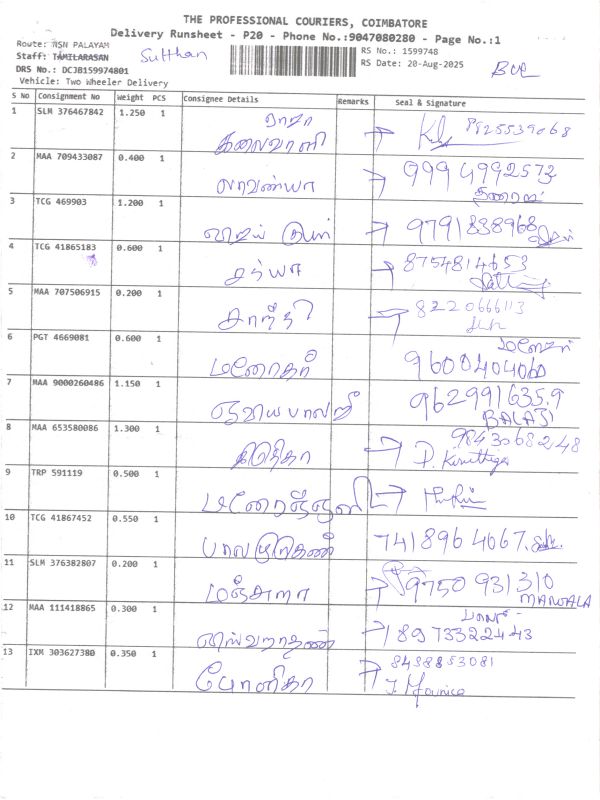 THE PROFESSIONAL COURIERS, COIMBATORE
Delivery Runsheet - P20 - Phone No.:9047080280 - Page No.:1
Route: NSN PALAYAM
Staff: TAMILARASAN Sutthan
DRS No.: DCJB159974801
Vehicle: Two Wheeler Delivery
RS No.: 1599748
RS Date: 20-Aug-2025
S No Consignment No Weight PCS Consignee Details Remarks Seal & Signature
1 SLM 376467842 1.250 1 ராஜா கலைவாணி 8925539068
2 MAA 709433087 0.400 1 லாவண்யா 9994992573
3 TCG 469903 1.200 1 9791838968
4 TCG 41865183 0.600 1 சத்யா 8754814653
5 MAA 707506915 0.200 1 சாந்தி 8220666113
6 PGT 4669081 0.600 1 மனோகர் 9600404060
7 MAA 9000260486 1.150 1 9629916359 BALAJI
8 MAA 653580086 1.300 1 9843068248
9 TRP 591119 0.500 1
10 TCG 41867452 0.550 1 பாலமுருகன் 7418964067
11 SLM 376382807 0.200 1 மஞ்சுளா 9750 931310 MANJULA
12 MAA 111418865 0.300 1 8973322443
13 IXM 303627380 0.350 1 மோனிகா 8438853081 J. Mounica